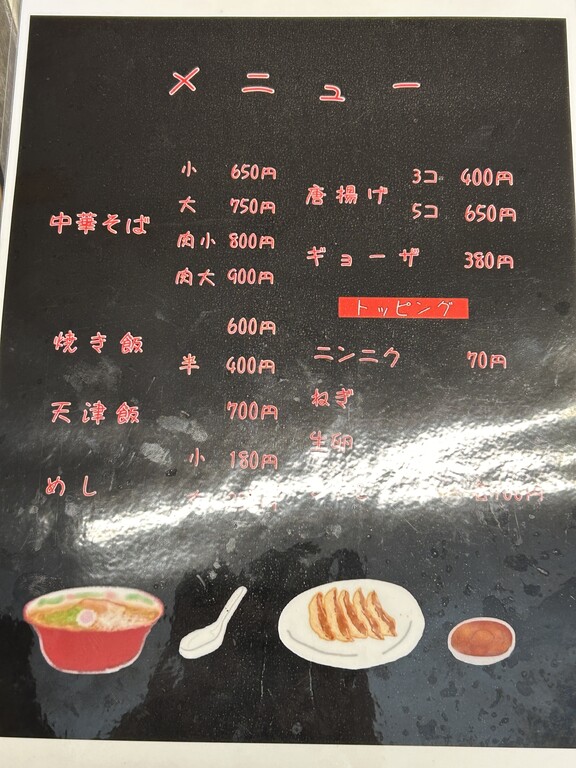 メニュー
中華そば
小 650円
大 750円
肉小 800円
肉大 900円
焼き飯
600円
半 400円
天津飯 700円
めし
小 180円
唐揚げ
3コ 400円
5コ 650円
ギョーザ 380円
トッピング
ニンニク 70円
ねぎ
生卵